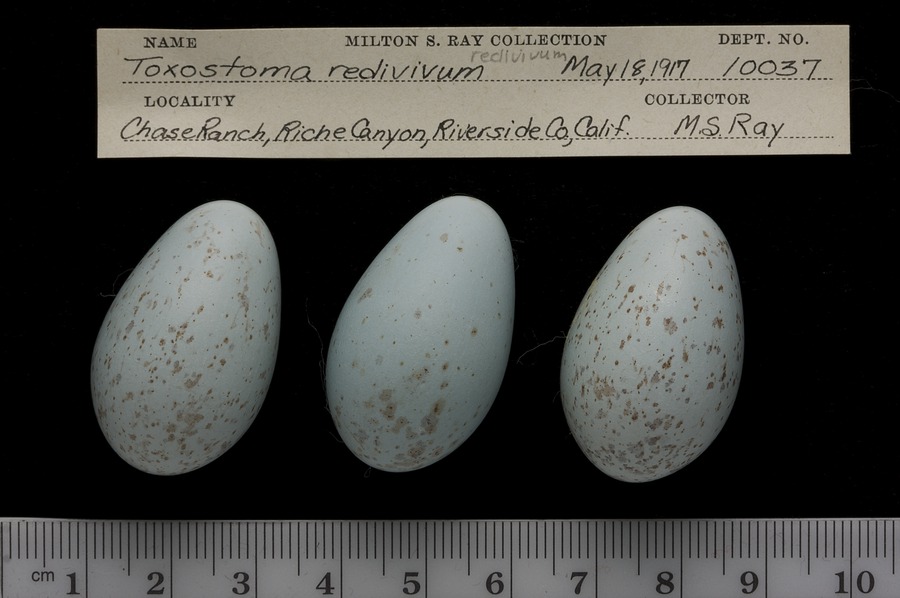 NAME MILTON S. RAY COLLECTION DEPT. NO.
redivivum
Toxostoma redivivum May 18, 1917 10037
LOCALITY COLLECTOR
Chase Ranch, Riche Canyon, Riverside Co, Calif. M.S. Ray
cm 1 2 3 4 5 6 7 8 9 10